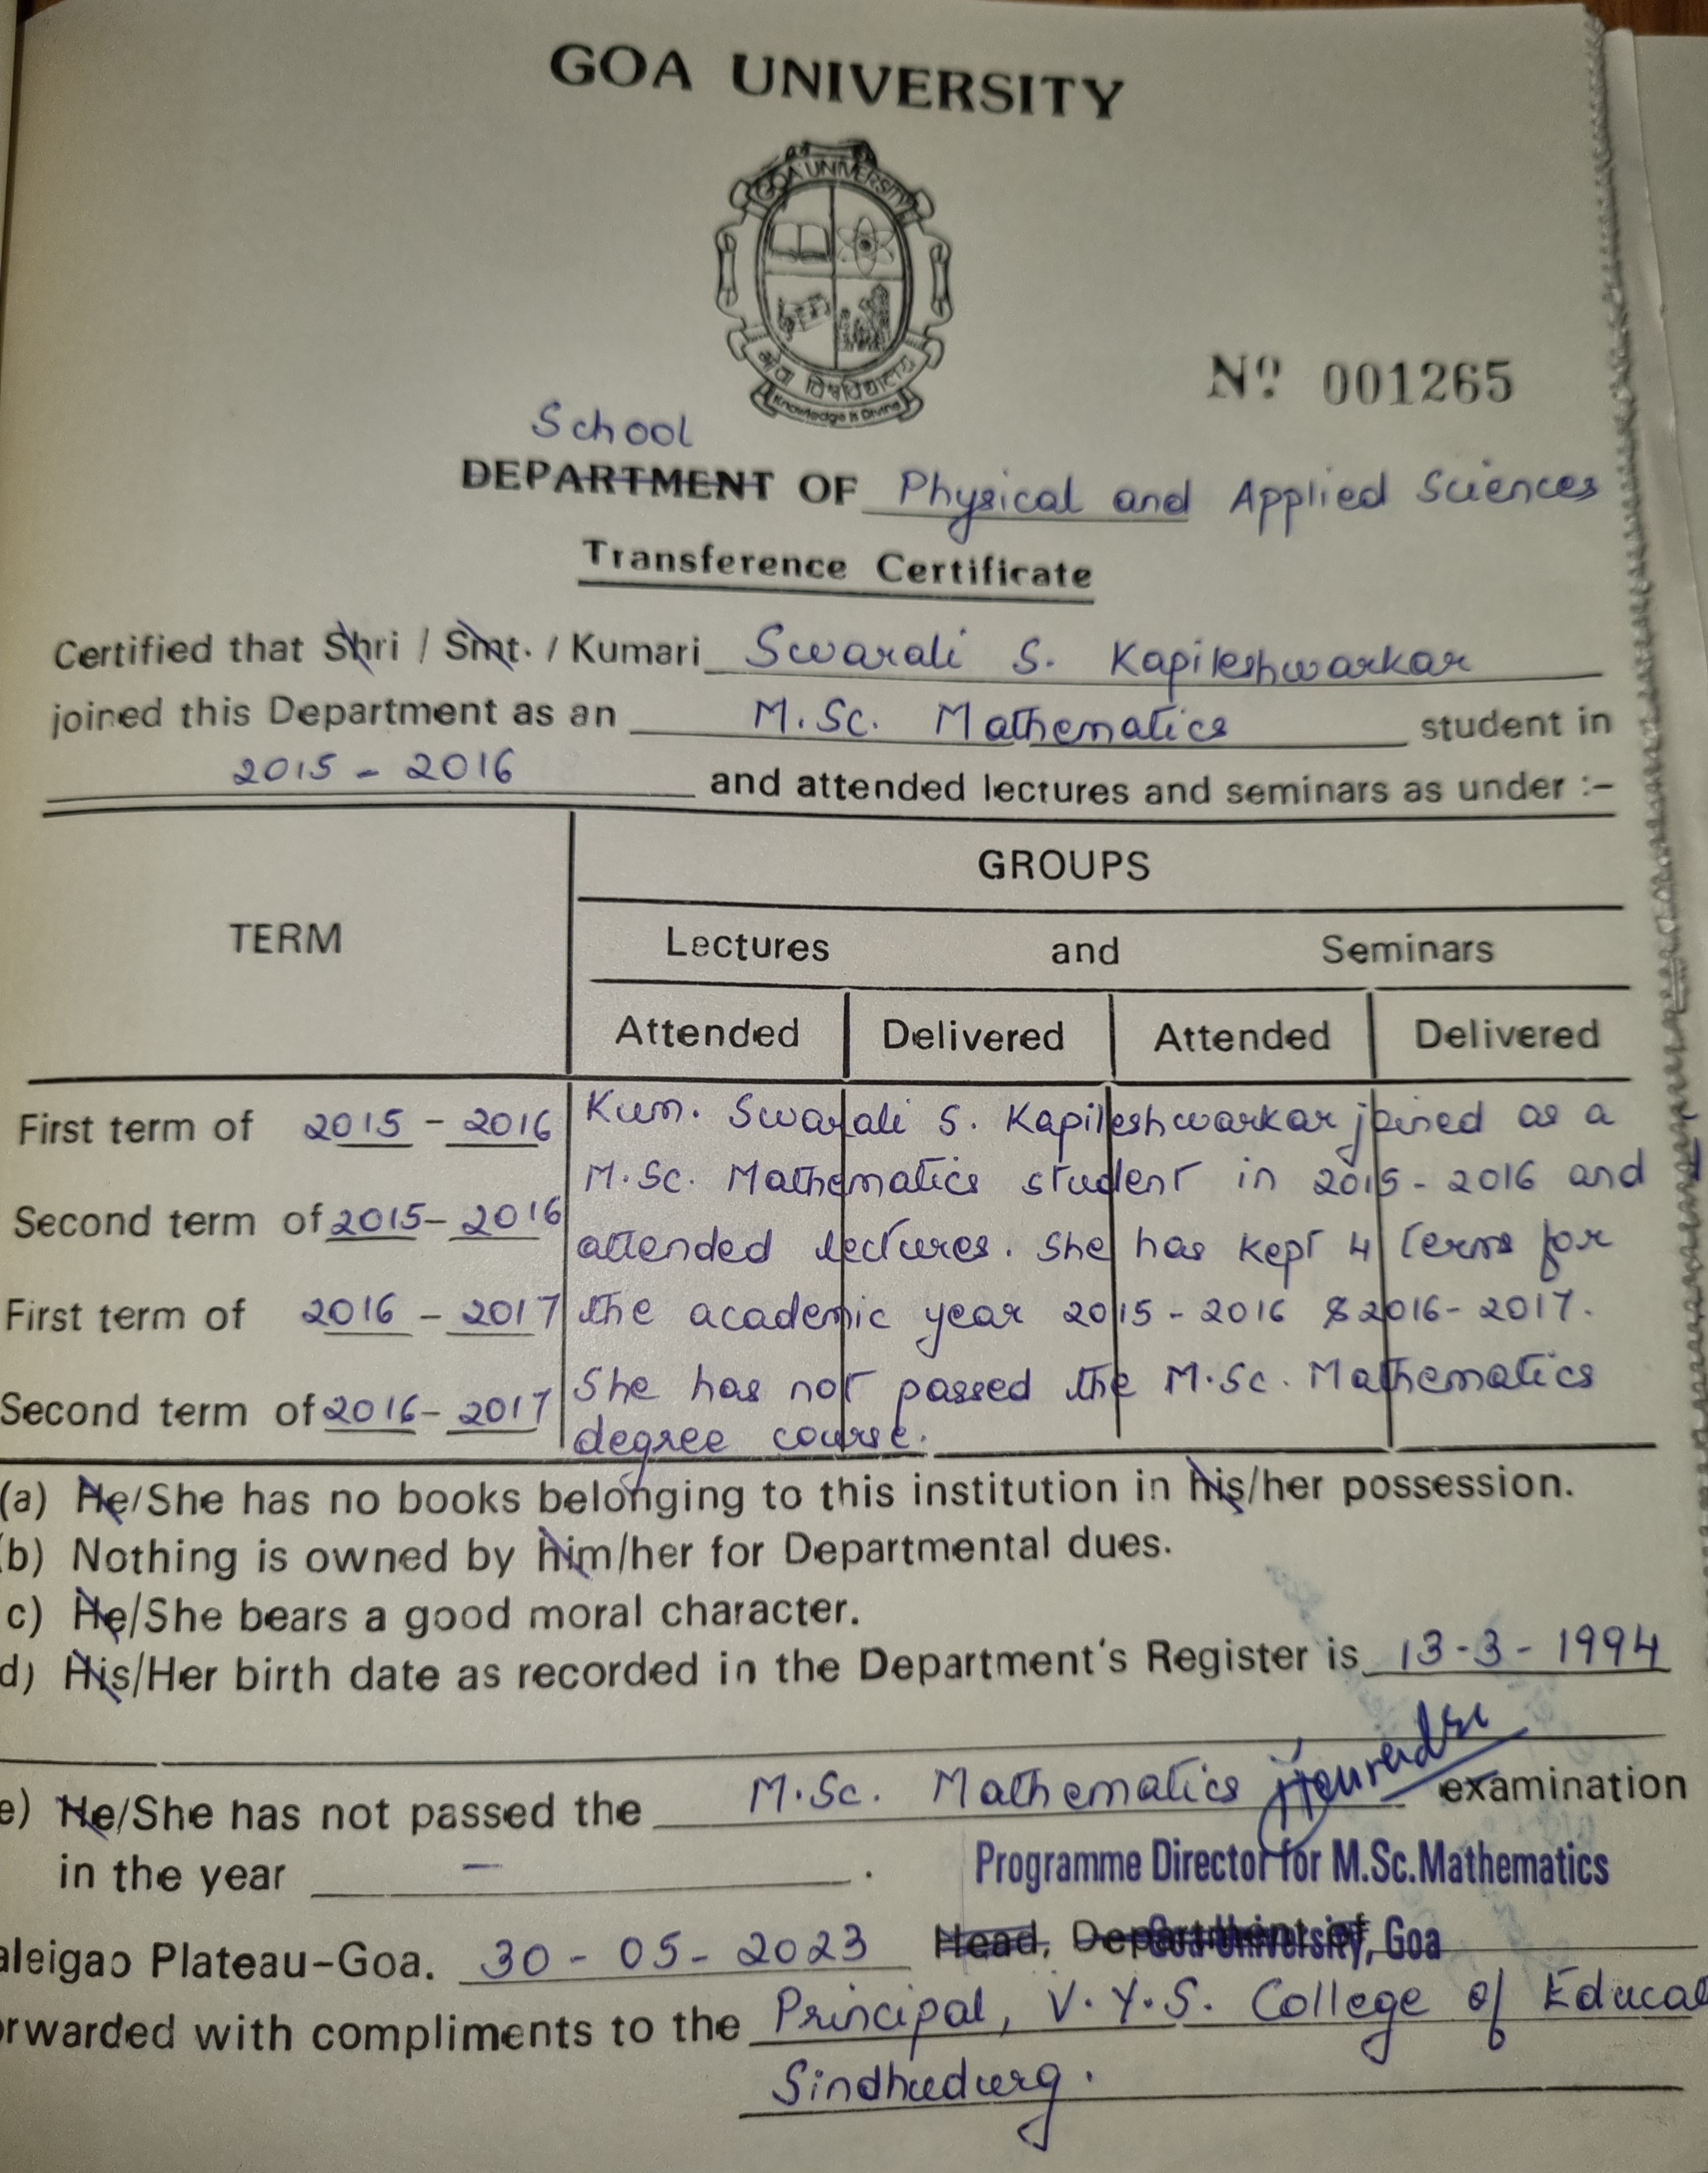 GOA UNIVERSITY
GOA UNIVERSITY
Knowledge is Divine
Nº 001265
School
DEPARTMENT OF Physical and Applied Sciences
Transference Certificate
Certified that Shri / Smt. / Kumari Swarali S. Kapileshwarkar
joined this Department as an M.Sc. Mathematics student in
2015 - 2016 and attended lectures and seminars as under :-
GROUPS
TERM
Lectures and Seminars
Attended Delivered Attended Delivered
First term of 2015 - 2016 Kum. Swarali S. Kapileshwarkar joined as a
M.Sc. Mathematics student in 2015 - 2016 and
Second term of 2015 - 2016
attended lectures. She has kept 4 terms for
First term of 2016 - 2017 the academic year 2015 - 2016 & 2016 - 2017.
Second term of 2016 - 2017 She has not passed the M.Sc. Mathematics
degree course.
(a) He/She has no books belonging to this institution in his/her possession.
b) Nothing is owned by him/her for Departmental dues.
c) He/She bears a good moral character.
d) His/Her birth date as recorded in the Department's Register is 13-3-1994
e) He/She has not passed the M.Sc. Mathematics examination
in the year — .
Programme Director for M.Sc.Mathematics
aleigao Plateau-Goa. 30 - 05 - 2023 Head, Department of
Goa University, Goa
rwarded with compliments to the Principal, V.Y.S. College of Educa
Sindhudurg.